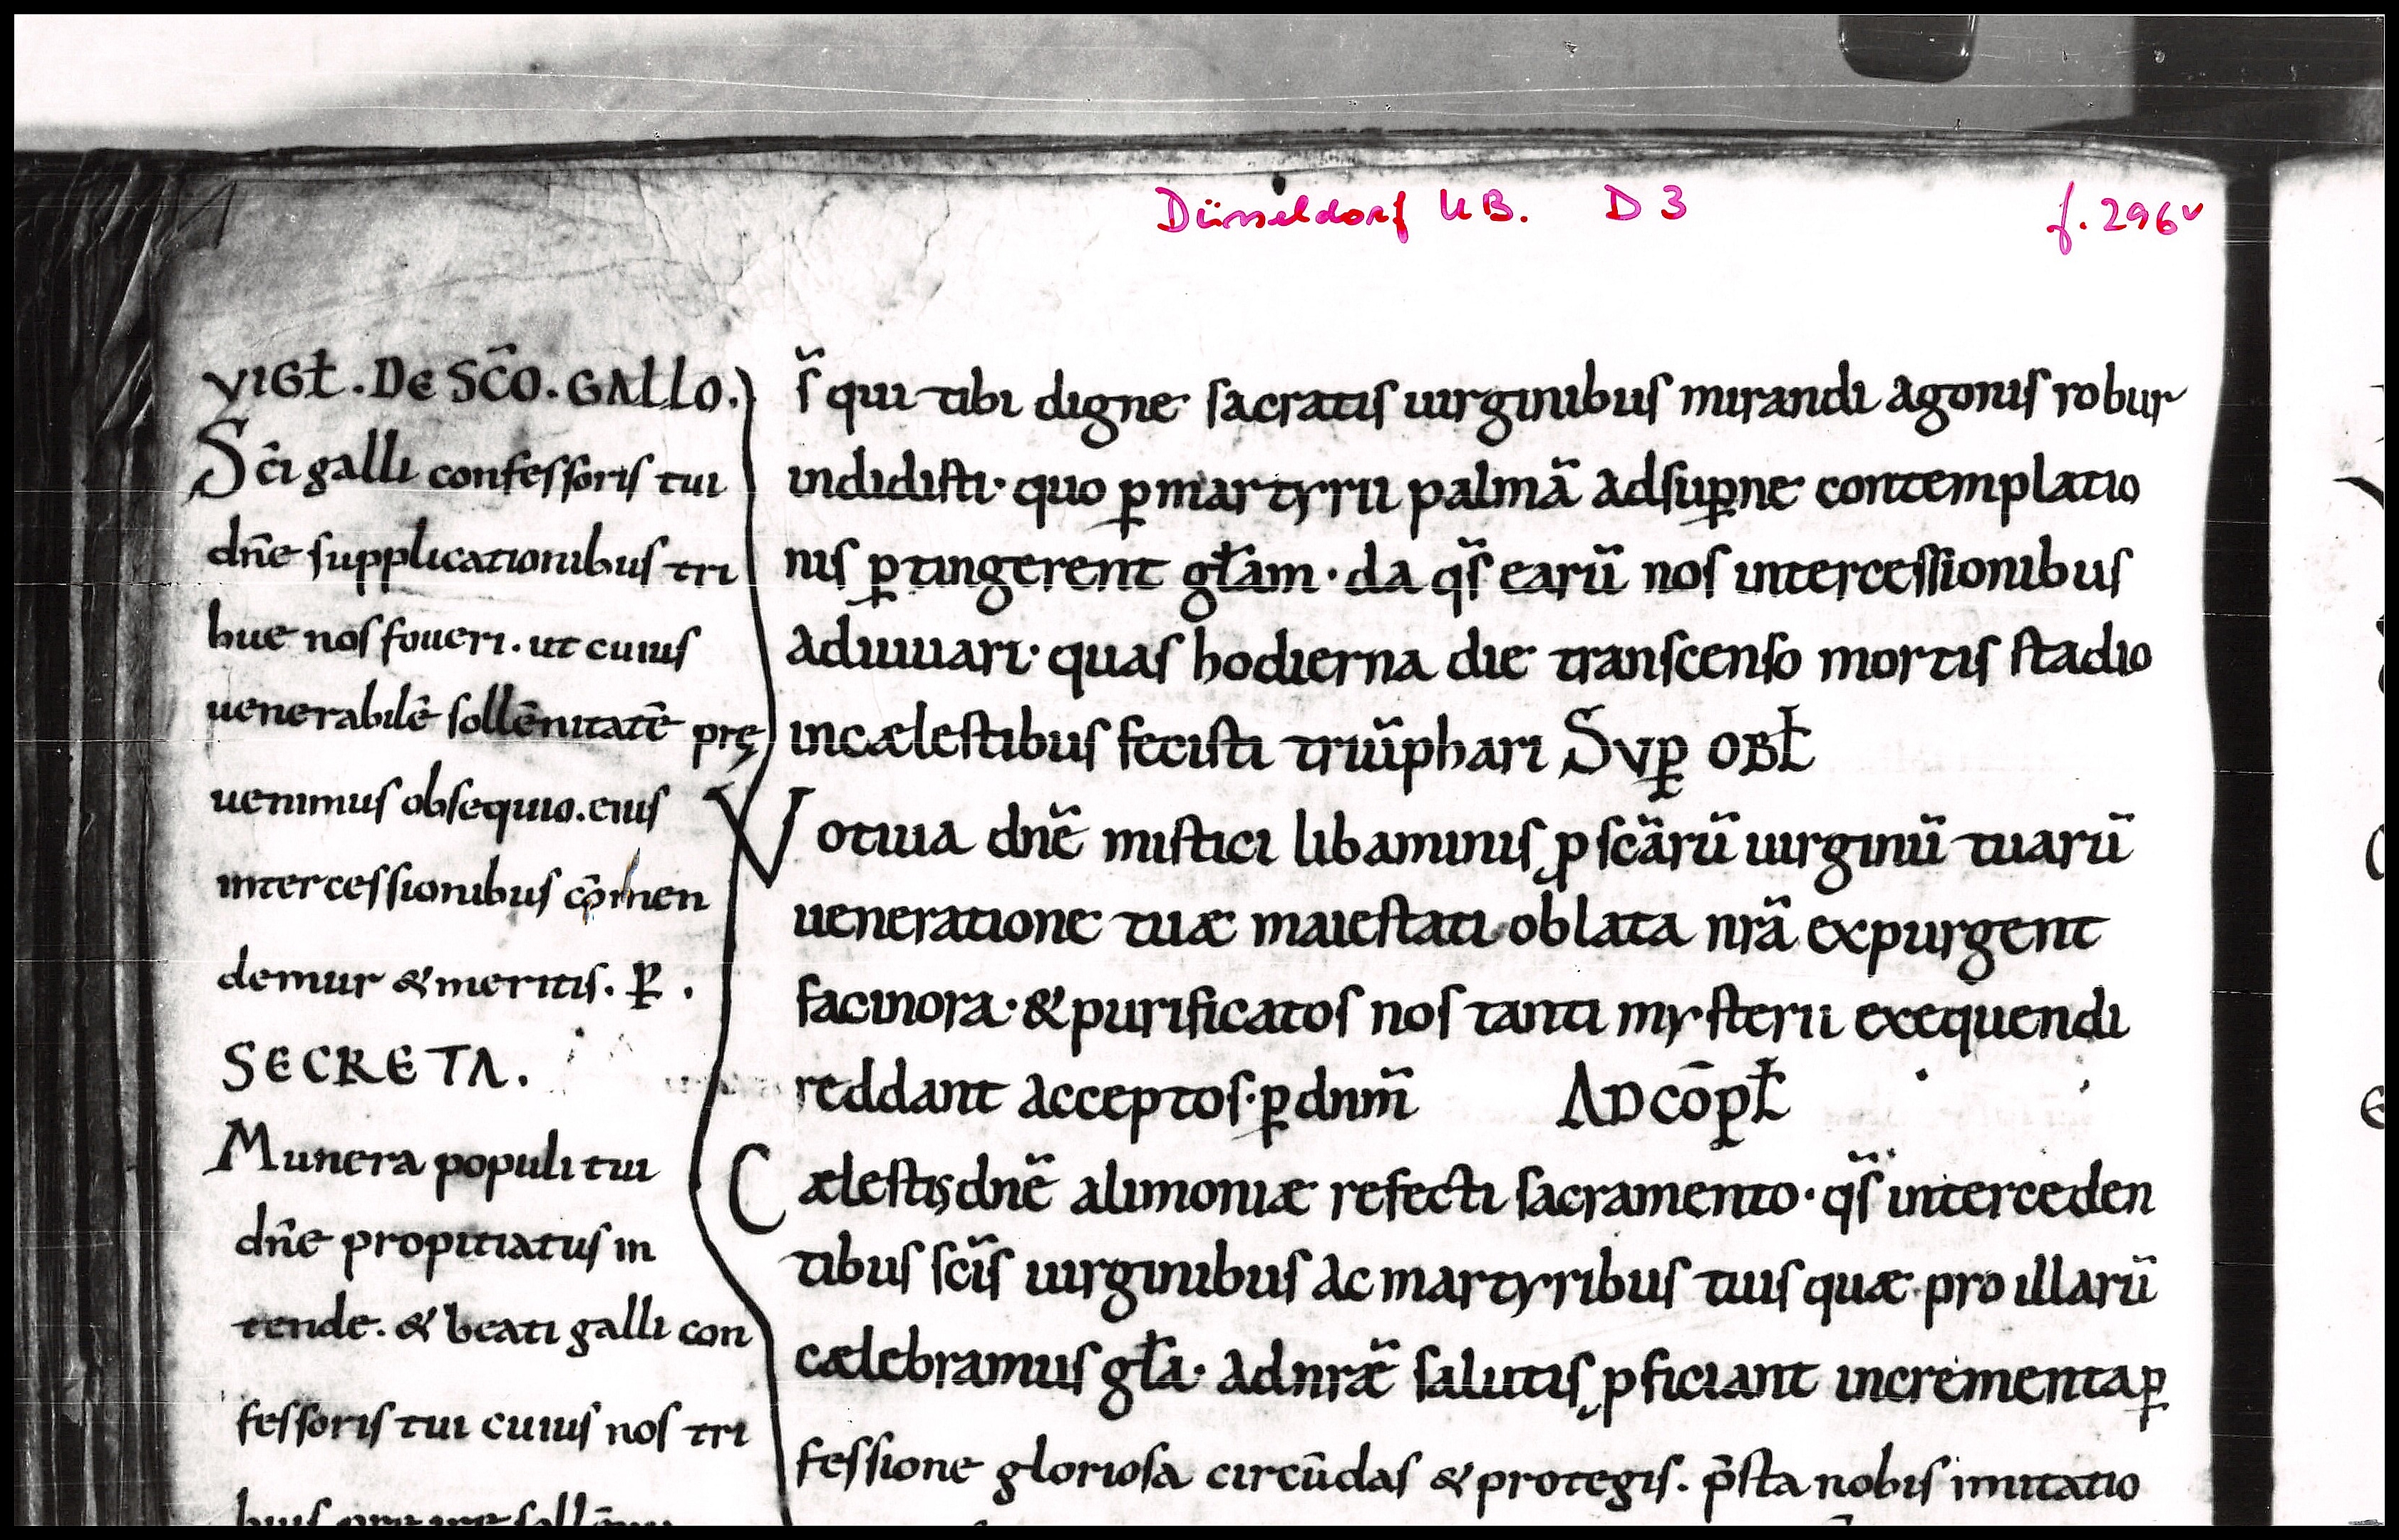 Düsseldorf UB. D 3 f. 296v
VIGƚ. DE SC̄O. GALLO.
Sc̄i galli confessoris tui
dn̄e supplicationibus tri
bue nos foueri. ut cuius
uenerabilē sollēnitatē prę
uenimus obsequio. eius
intercessionibus cōmen
demur & meritis. P̲.
SECRETA.
Munera populi tui
dn̄e propitiatus in
tende. & beati galli con
fessoris tui cuius nos tri
s̄ qui tibi digne sacratis uirginibus mirandi agonis robur
indidisti· quo ꝑmartyrii palmā adsuꝑne contemplatio
nis ꝑtingerent gƚam· da qs̄ earū nos intercessionibus
adiuuari· quas hodierna die transcenso mortis stadio
incælestibus fecisti triūphari SVꝑ OBƚ
Votiua dn̄e mistici libaminis ꝓ scārū uirginū tuarū
ueneratione tuæ maiestati oblata nr̄a expurgent
facinora· & purificatos nos tanti mysterii exequendi
reddant acceptos· ꝑ dnm̄ AD CŌPƚ
Cælestis dn̄e alimoniæ refecti sacramento· qs̄ interceden
tibus sc̄is uirginibus ac martyribus tuis quæ pro illarū
cælebramus gƚa· ad nr̄æ salutis ꝓficiant incrementa ꝑ
fessione gloriosa circūdas & protegis. p̄sta nobis imitatio